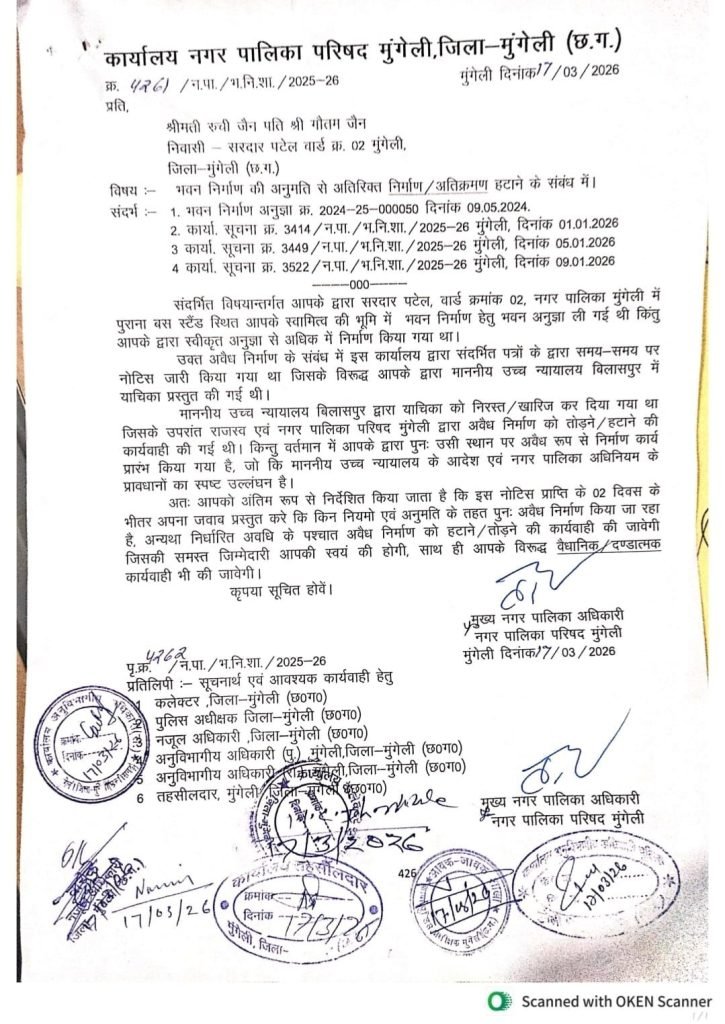 कार्यालय नगर पालिका परिषद मुंगेली,जिला–मुंगेली (छ.ग.)
क्र. 4261 /न.पा./भ.नि.शा./2025-26 मुंगेली दिनांक 17/03/2026
प्रति,
श्रीमती रुची जैन पति श्री गौतम जैन
निवासी – सरदार पटेल वार्ड क्र. 02 मुंगेली,
जिला–मुंगेली (छ.ग.)
विषय :– भवन निर्माण की अनुमति से अतिरिक्त निर्माण/अतिक्रमण हटाने के संबंध में।
संदर्भ :– 1. भवन निर्माण अनुज्ञा क्र. 2024-25-000050 दिनांक 09.05.2024.
2. कार्या. सूचना क्र. 3414/न.पा./भ.नि.शा./2025-26 मुंगेली, दिनांक 01.01.2026
3 कार्या. सूचना क्र. 3449/न.पा./भ.नि.शा./2025-26 मुंगेली, दिनांक 05.01.2026
4 कार्या. सूचना क्र. 3522/न.पा./भ.नि.शा./2025-26 मुंगेली, दिनांक 09.01.2026
-----000-----
संदर्भित विषयान्तर्गत आपके द्वारा सरदार पटेल, वार्ड क्रमांक 02, नगर पालिका मुंगेली में
पुराना बस स्टैंड स्थित आपके स्वामित्व की भूमि में भवन निर्माण हेतु भवन अनुज्ञा ली गई थी किंतु
आपके द्वारा स्वीकृत अनुज्ञा से अधिक में निर्माण किया गया था।
उक्त अवैध निर्माण के संबंध में इस कार्यालय द्वारा संदर्भित पत्रों के द्वारा समय–समय पर
नोटिस जारी किया गया था जिसके विरूद्ध आपके द्वारा माननीय उच्च न्यायालय बिलासपुर में
याचिका प्रस्तुत की गई थी।
माननीय उच्च न्यायालय बिलासपुर द्वारा याचिका को निरस्त/खारिज कर दिया गया था
जिसके उपरांत राजस्व एवं नगर पालिका परिषद मुंगेली द्वारा अवैध निर्माण को तोड़ने/हटाने की
कार्यवाही की गई थी। किन्तु वर्तमान में आपके द्वारा पुनः उसी स्थान पर अवैध रूप से निर्माण कार्य
प्रारंभ किया गया है, जो कि माननीय उच्च न्यायालय के आदेश एवं नगर पालिका अधिनियम के
प्रावधानों का स्पष्ट उल्लंघन है।
अतः आपको अंतिम रूप से निर्देशित किया जाता है कि इस नोटिस प्राप्ति के 02 दिवस के
भीतर अपना जवाब प्रस्तुत करे कि किन नियमो एवं अनुमति के तहत पुनः अवैध निर्माण किया जा रहा
है, अन्यथा निर्धारित अवधि के पश्चात अवैध निर्माण को हटाने/तोड़ने की कार्यवाही की जावेगी
जिसकी समस्त जिम्मेदारी आपकी स्वयं की होगी, साथ ही आपके विरूद्ध वैधानिक/दण्डात्मक
कार्यवाही भी की जावेगी।
कृपया सूचित होवें।
मुख्य नगर पालिका अधिकारी
नगर पालिका परिषद मुंगेली
मुंगेली दिनांक 17/03/2026
पृ.क्र. 4262 /न.पा./भ.नि.शा./2025-26
प्रतिलिपी :– सूचनार्थ एवं आवश्यक कार्यवाही हेतु
कलेक्टर ,जिला–मुंगेली (छ०ग०)
पुलिस अधीक्षक जिला–मुंगेली (छ०ग०)
नजूल अधिकारी ,जिला–मुंगेली (छ०ग०)
अनुविभागीय अधिकारी (पु.) मुंगेली,जिला–मुंगेली (छ०ग०)
अनुविभागीय अधिकारी मुंगेली,जिला–मुंगेली (छ०ग०)
6 तहसीलदार, मुंगेली, जिला–मुंगेली (छ०ग०)
मुख्य नगर पालिका अधिकारी
नगर पालिका परिषद मुंगेली
क्रमांक
दिनांक 17/03/26
17/3/2026
17/03/26
कार्यालय तहसीलदार
क्रमांक
दिनांक 17/3/26
मुंगेली, जिला–
426
आवक-जावक
17/03/26
Scanned with OKEN Scanner
1/1